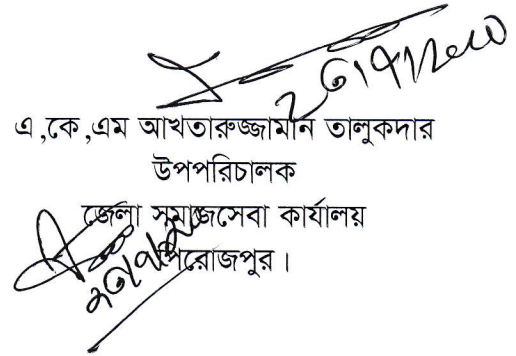 এ,কে,এম আখতারুজ্জামান তালুকদার
উপপরিচালক
জেলা সমাজসেবা কার্যালয়
পিরোজপুর।